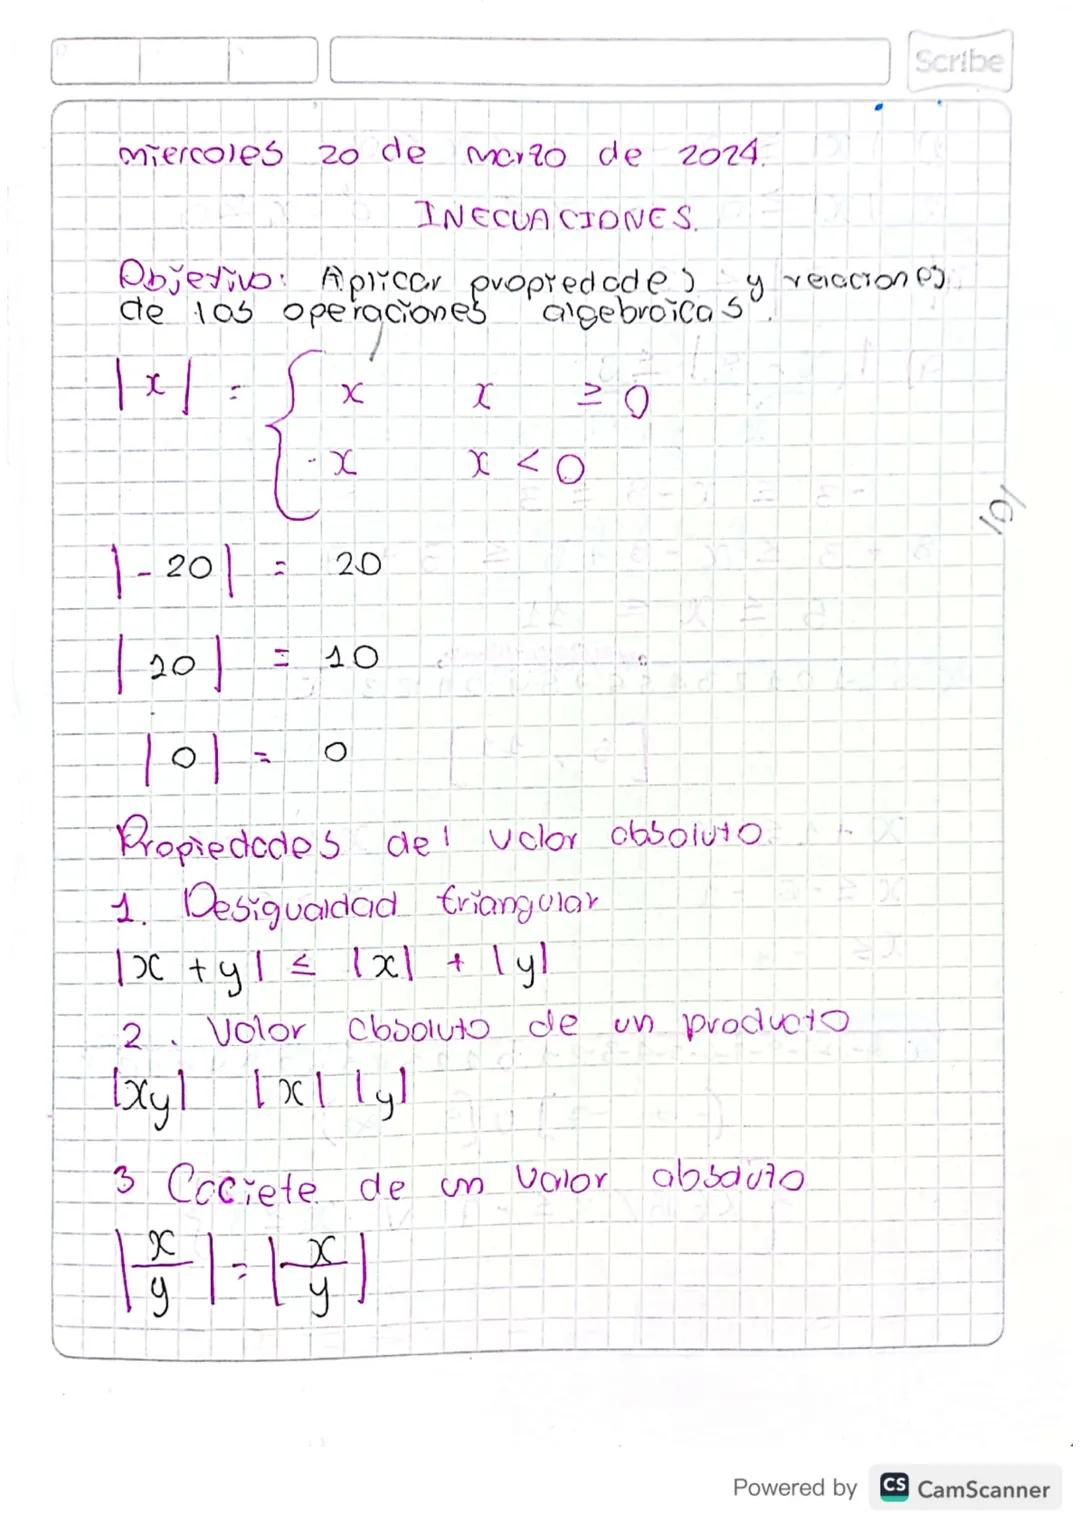 Scribe
miercoles 20 de marzo de 2024.
INECUACIONES.
Objetivo: Aplicar propiedades y relaciones
de las operaciones algebraicas.
|x| = { x x ≥ 0
-x x < 0
|-20| = 20
|10| = 10
|0| = 0
Propiedades del valor absoluto
1. Desigualdad triangular
|x + y| ≤ |x| + |y|
2. Valor absoluto de un producto
|xy| |x| |y|
3 Cociete de un valor absoluto
|x/y| = |x/y|
101
Powered by CS CamScanner